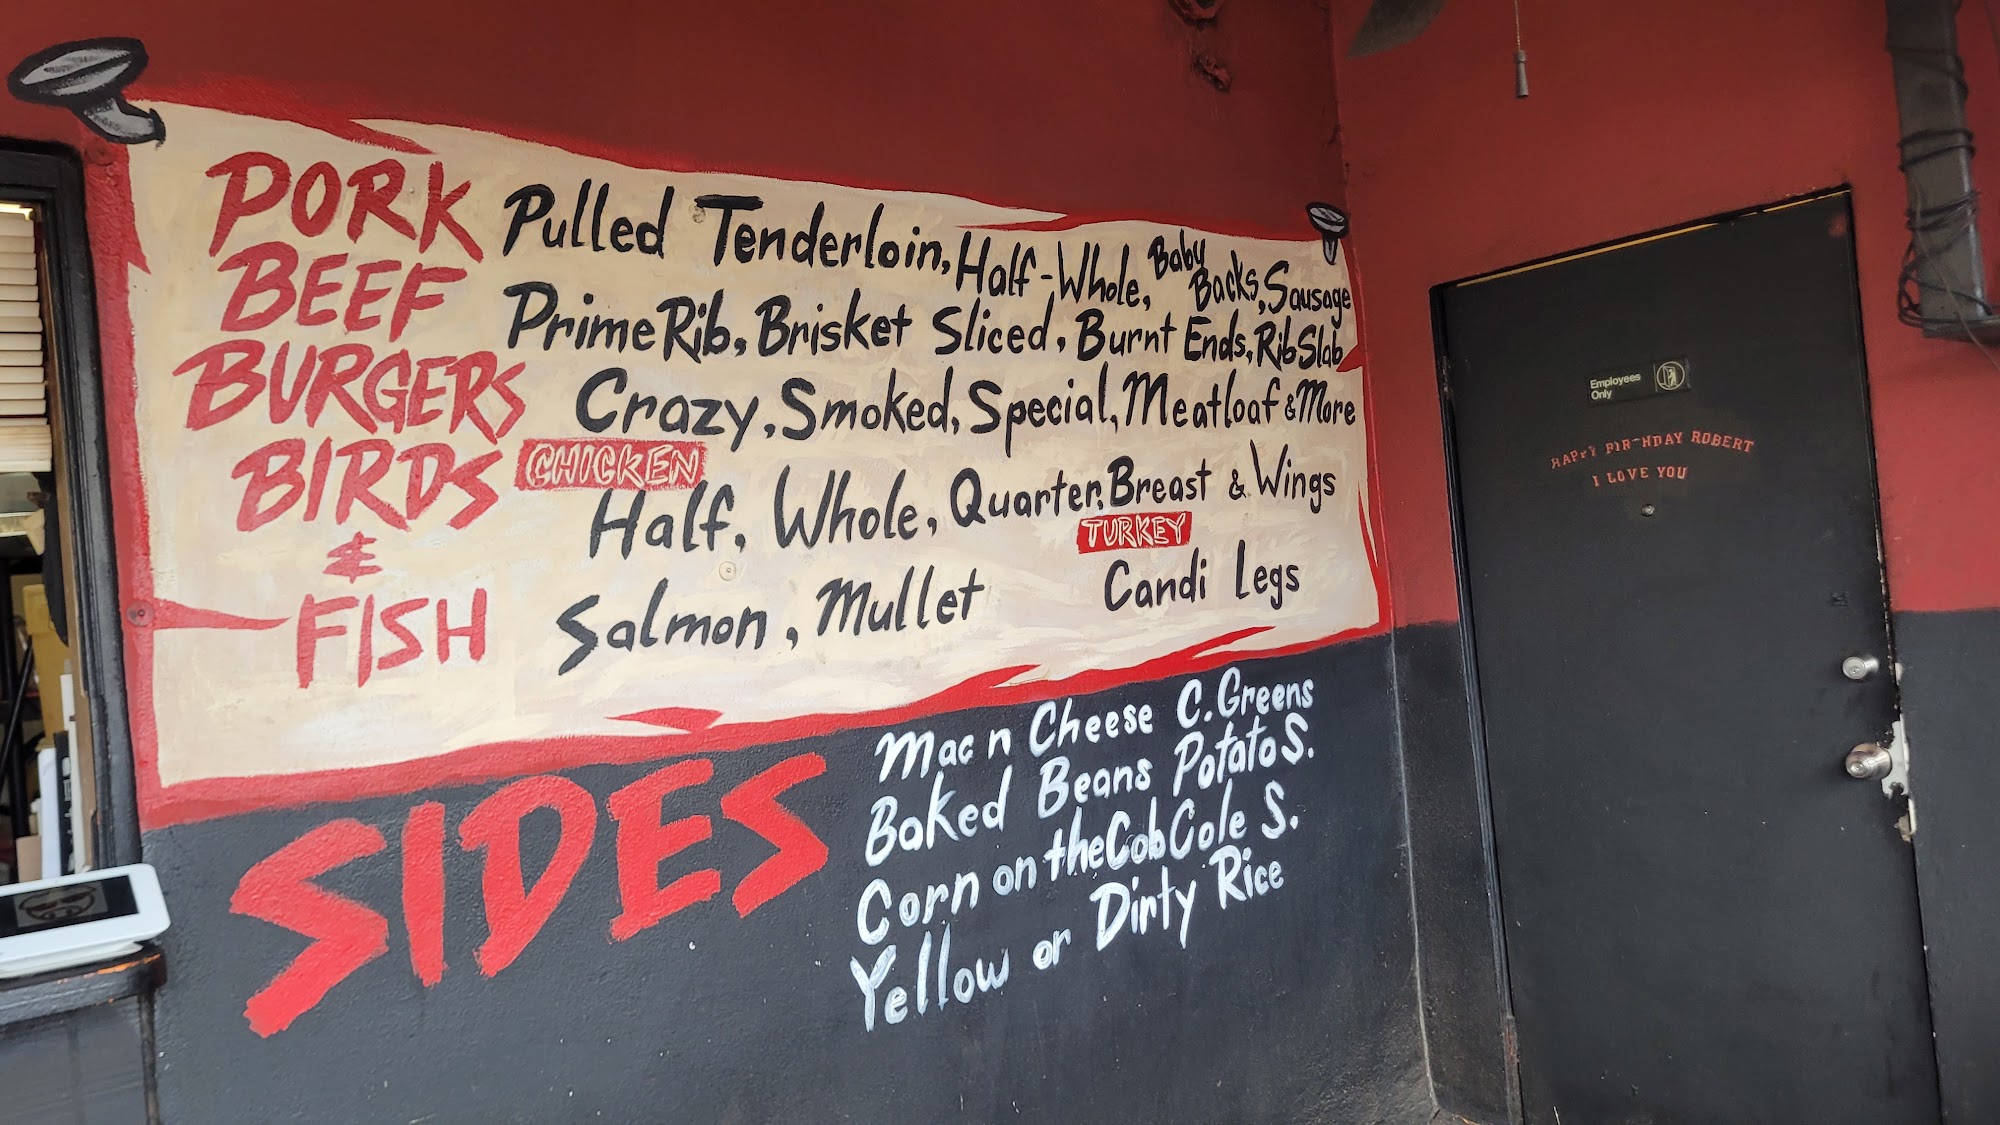 PORK Pulled Tenderloin, Half-Whole, Baby Backs, Sausage
BEEF Prime Rib, Brisket Sliced, Burnt Ends, Rib Slab
BURGERS Crazy, Smoked, Special, Meatloaf & More
BIRDS CHICKEN
Half, Whole, Quarter, Breast & Wings
&
TURKEY
FISH Salmon, Mullet Candi Legs
SIDES
Mac n Cheese C. Greens
Baked Beans Potato S.
Corn on the Cob Cole S.
Yellow or Dirty Rice
Employees
Only
HAPPY BIRTHDAY ROBERT
I LOVE YOU